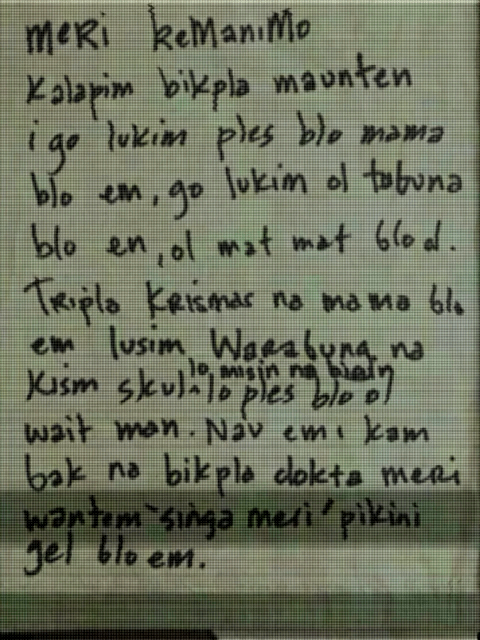 meri keManiMo
Kalapim bikpla maunten
i go lukim ples blo mama
blo em, go lukim ol tubuna
blo en, ol mat mat blo ol.
Tripla Krismas na mama blo
em lusim Warabung na
lo misin na bisin
Kism skul lo ples blo ol
wait man. Nav em i kam
bak na bikpla dokta meri
wantem "singa meri" pikini
gel blo em.